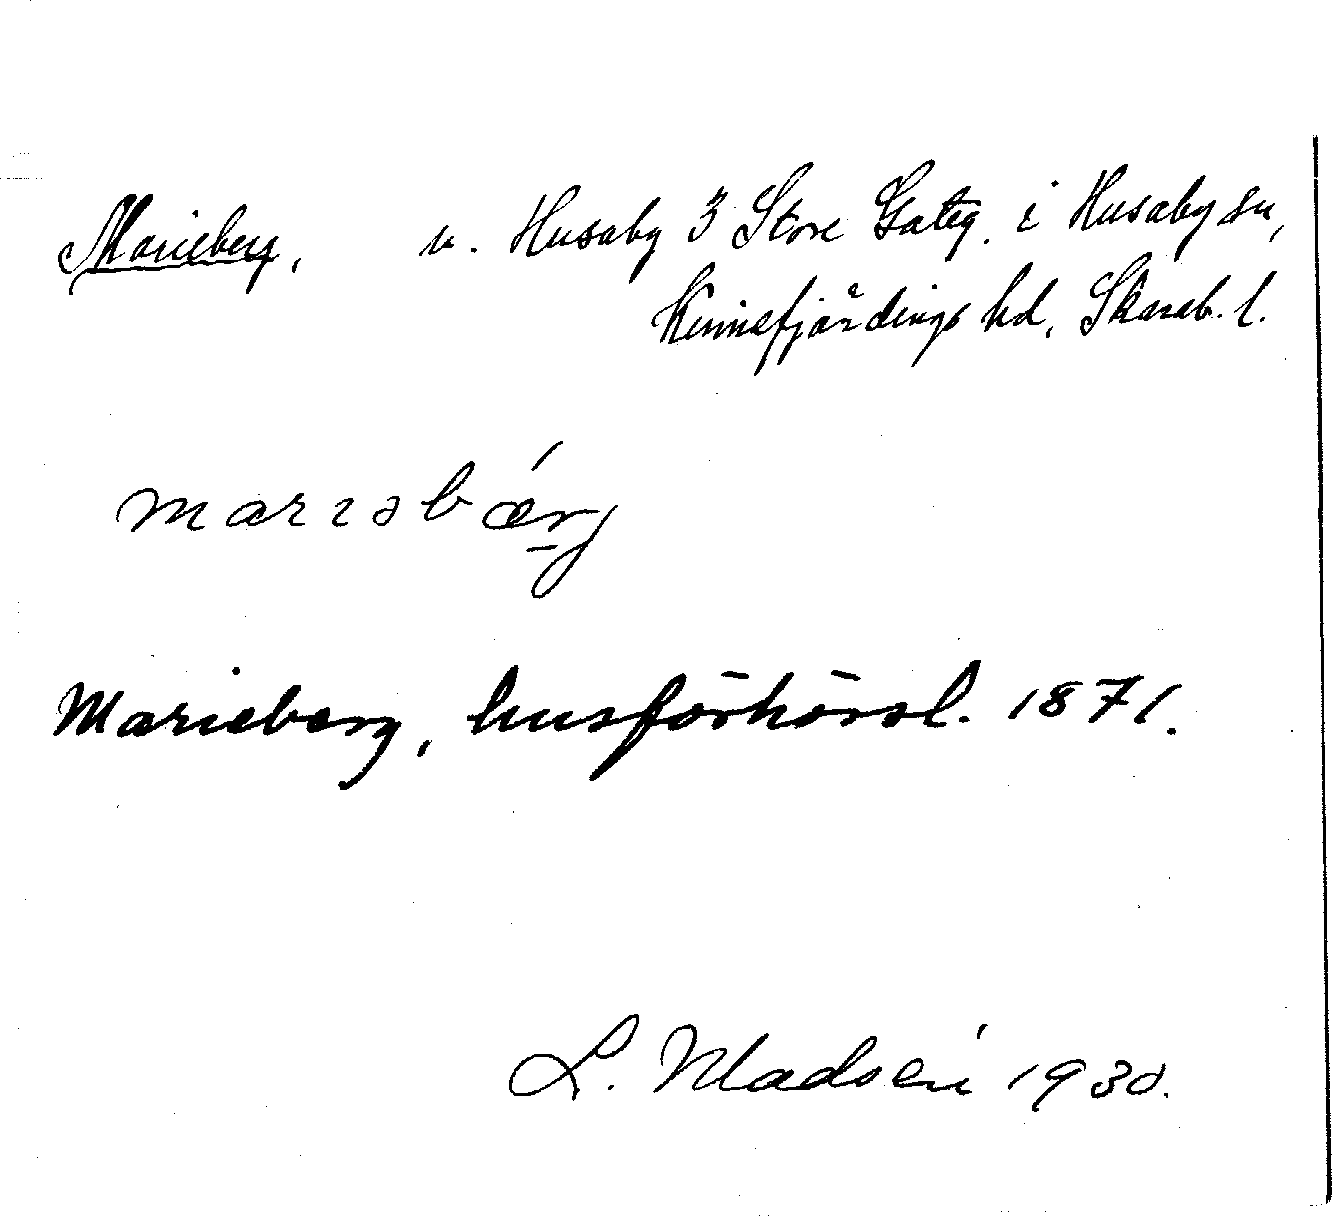 Marieberg, u. Husaby 3 Store Gateg. i Husaby sn,
Kinnefjärdings hd, Skarab. l.
marıəbǽrj
Marieberg, husförhörsl. 1871.
L. Madsén 1930.